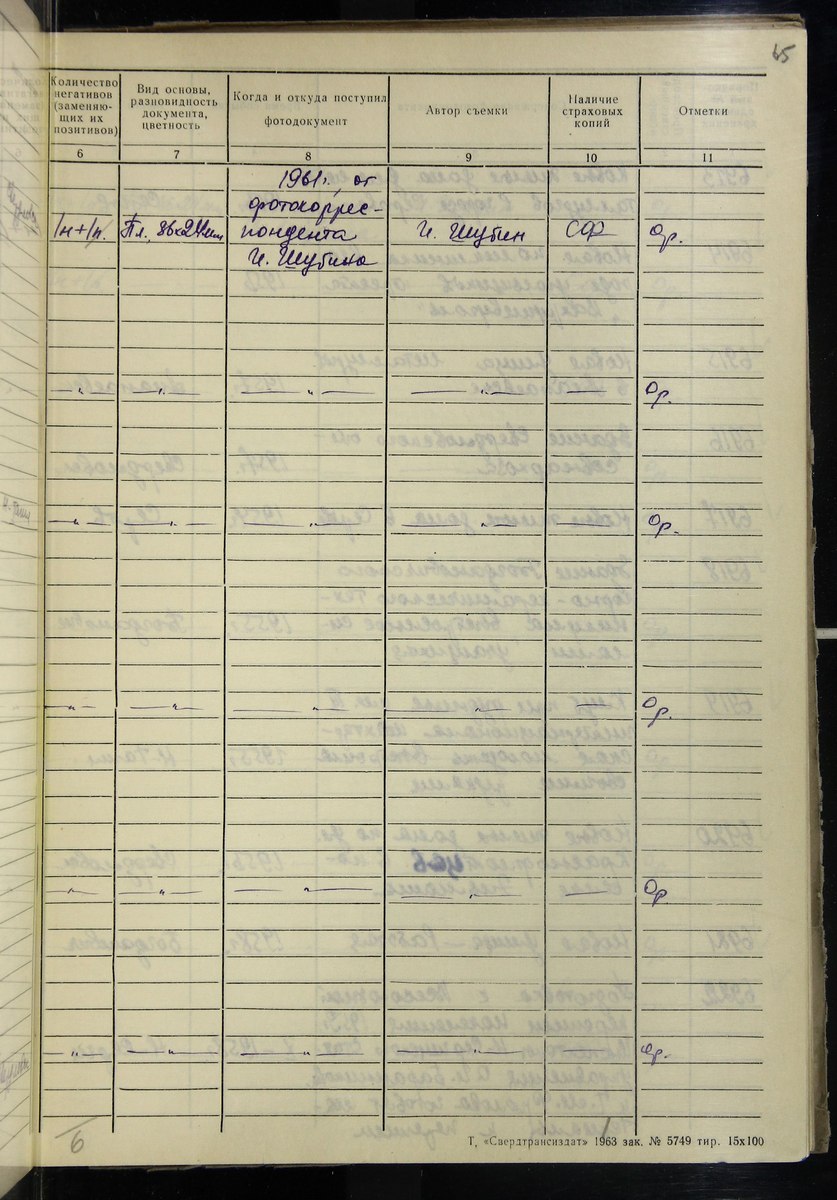 65
Количество негативов (заменяющих их позитивов)
Вид основы, разновидность документа, цветность
Когда и откуда поступил фотодокумент
Автор съемки
Наличие страховых копий
Отметки
6 7 8 9 10 11
1961г. от
фотокоррес-
1н+1п. Пл., 36х24мм пондента И. Шубин СФ Ор.
И. Шубина
— „ — — „ — — „ — — „ — — Ор.
— „ — — „ — — „ — — „ — — Ор.
— „ — — „ — — „ — — „ — — Ор.
— „ — — „ — — „ — — „ — — Ор.
— „ — — „ — — „ — — „ — — Ор.
6
Т, «Свердтрансиздат» 1963 зак. № 5749 тир. 15х100